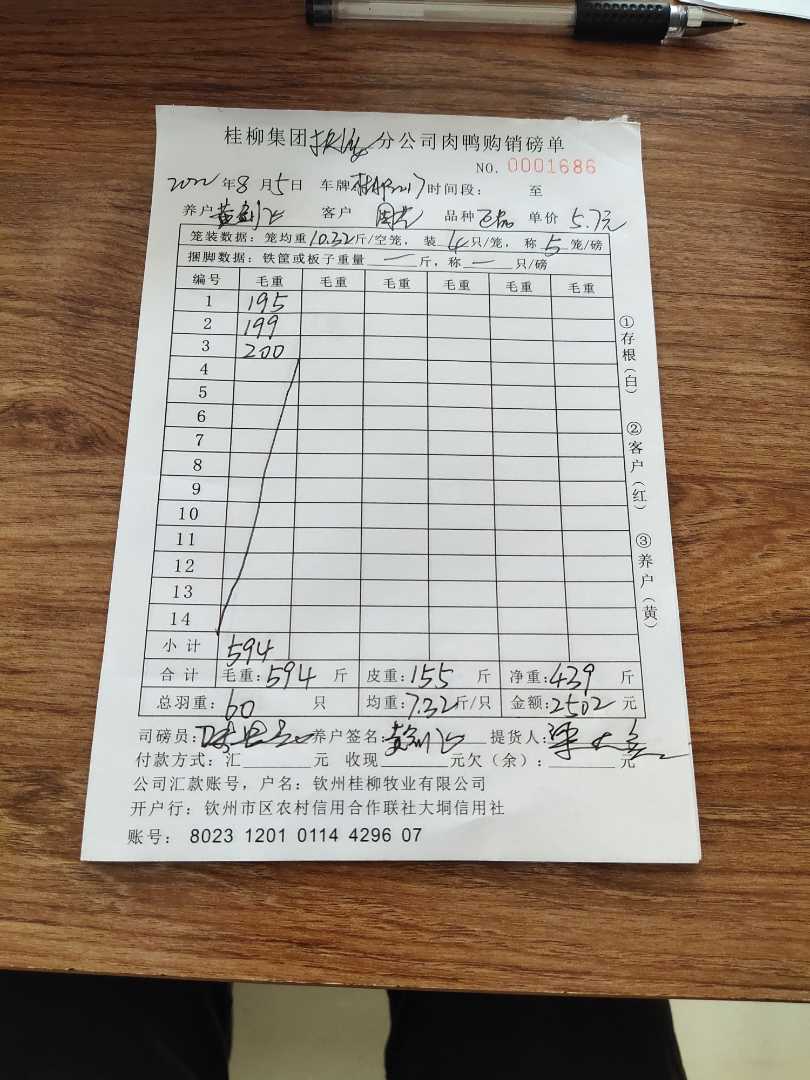 桂柳集团 分公司肉鸭购销磅单
NO. 0001686
2022年8月5日 车牌 时间段： 至
养户 黄剑飞 客户 周 品种 正品 单价 5.7元
笼装数据：笼均重10.32斤/空笼，装4只/笼，称5笼/磅
捆脚数据：铁筐或板子重量一斤，称一只/磅
编号 毛重 毛重 毛重 毛重 毛重 毛重
1 195
2 199
3 200
4
5
6
7
8
9
10
11
12
13
14
小计 594
合计 毛重：594斤 皮重：155斤 净重：439斤
总羽重：60只 均重：7.32斤/只 金额：2502元
司磅员： 养户签名：黄剑飞 提货人：
付款方式：汇 元 收现 元欠（余）： 元
公司汇款账号，户名：钦州桂柳牧业有限公司
开户行：钦州市区农村信用合作联社大垌信用社
账号： 8023 1201 0114 4296 07
①存根（白）
②客户（红）
③养户（黄）